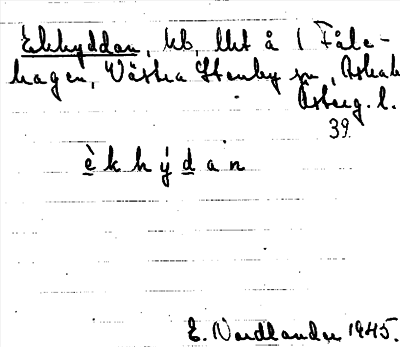 Ekhyddan, kb, lht å 1 Fåle-
hagen, Västra Stenby sn, Askab
Östeg. l.
39
è k h ý d a n
E. Nordlander 1945.